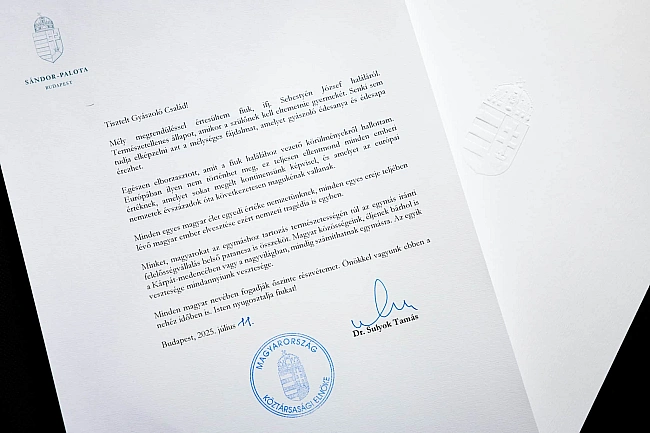 SÁNDOR-PALOTA
BUDAPEST
Tisztelt Gyászoló Család!
Mély megrendüléssel értesültem fiuk, ifj. Sebestyén József haláláról.
Természetellenes állapot, amikor a szülőnek kell eltemetnie gyermekét. Senki sem
tudja elképzelni azt a mélységes fájdalmat, amelyet gyászoló édesanya és édesapa
érezhet.
Egészen elborzasztott, amit a fiuk halálához vezető körülményekről hallottam.
Európában ilyen nem történhet meg, ez teljesen ellentmond minden emberi
értéknek, amelyet sokat megélt kontinensünk képvisel, és amelyet az európai
nemzetek évszázadok óta következetesen magukénak vallanak.
Minden egyes magyar élet egyedi értéke nemzetünknek, minden egyes ereje teljében
lévő magyar ember elvesztése ezért nemzeti tragédia is egyben.
Minket, magyarokat az egymáshoz tartozás természetességén túl az egymás iránti
felelősségvállalás belső parancsa is összeköt. Magyar közösségeink, éljenek bárhol is
a Kárpát-medencében vagy a nagyvilágban, mindig számíthatnak egymásra. Az egyik
vesztesége mindannyiunk vesztesége.
Minden magyar nevében fogadják őszinte részvétemet. Önökkel vagyunk ebben a
nehéz időben is. Isten nyugosztalja fiukat!
Budapest, 2025. július 11.
Dr. Sulyok Tamás
MAGYARORSZÁG
KÖZTÁRSASÁGI ELNÖKE